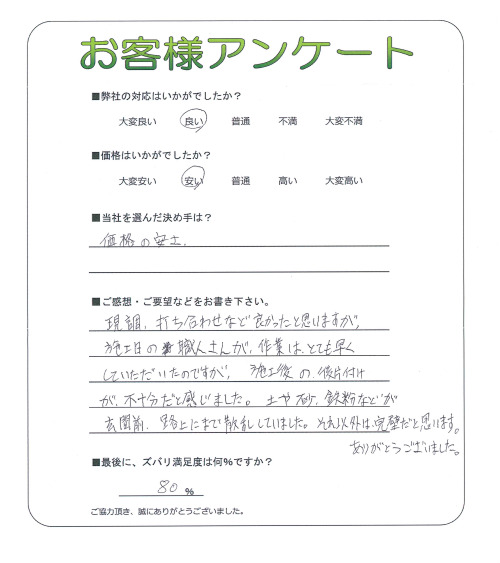 お客様アンケート
■弊社の対応はいかがでしたか？
大変良い 良い 普通 不満 大変不満
■価格はいかがでしたか？
大変安い 安い 普通 高い 大変高い
■当社を選んだ決め手は？
価格の安さ、
■ご感想・ご要望などをお書き下さい。
現調、打ち合わせなど良かったと思いますが、
施工日の職人さんが、作業は、とても早く
していただいたのですが、施工後の、後片付け
が、不十分だと感じました。土や砂、鉄粉などが
玄関前、路上にまで散乱していました。それ以外は、完璧だと思います。
ありがとうございました。
■最後に、ズバリ満足度は何%ですか？
80 %
ご協力頂き、誠にありがとうございました。